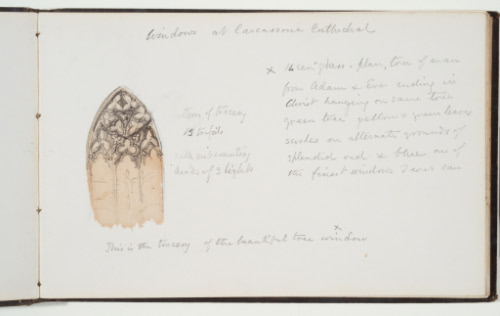 Windows at Carcassonne Cathedral
x 16 cen^y glass. plan, tree of man
from Adam & Eve ending in
Christ hanging on same tree
green tree yellow & green leaves
on alternate grounds of
splendid red & blue one of
the finest windows I ever saw
of tracery
13 trefoils
heads of 3 lights
x
This is the tracery of the beautiful tree window